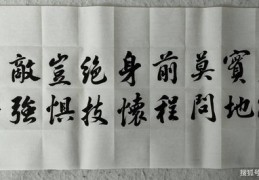 實地
莫問
前程
身懷
絕技
豈懼
敵強
搜狐号